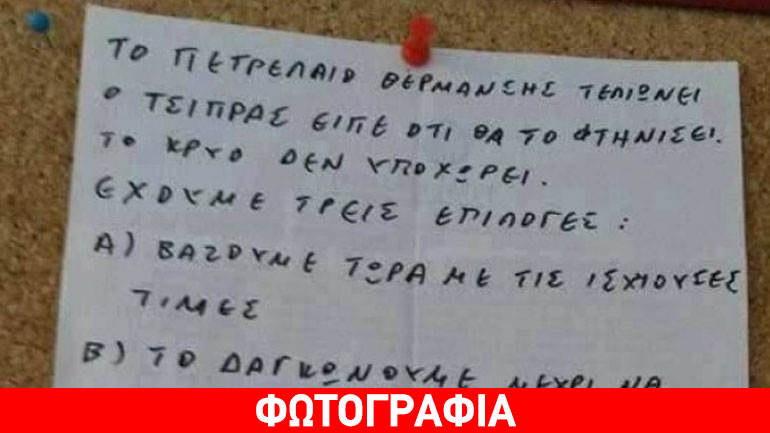 ΤΟ ΠΕΤΡΕΛΑΙΟ ΘΕΡΜΑΝΣΗΣ ΤΕΛΙΩΝΕΙ
Ο ΤΣΙΠΡΑΣ ΕΙΠΕ ΟΤΙ ΘΑ ΤΟ ΦΤΗΝΙΣΕΙ.
ΤΟ ΚΡΥΟ ΔΕΝ ΥΠΟΧΩΡΕΙ.
ΕΧΟΥΜΕ ΤΡΕΙΣ ΕΠΙΛΟΓΕΣ:
Α) ΒΑΖΟΥΜΕ ΤΩΡΑ ΜΕ ΤΙΣ ΙΣΧΙΟΥΣΕΣ
ΤΙΜΕΣ
Β) ΤΟ ΔΑΓΚΩΝΟΥΜΕ ΜΕΧΡΙ ΝΑ
ΦΩΤΟΓΡΑΦΙΑ